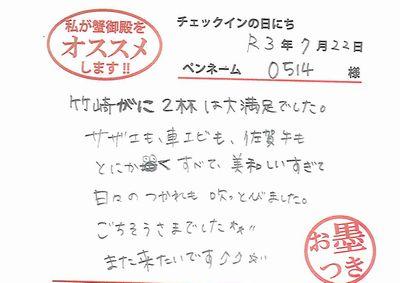 私が蟹御殿を
オススメ
します!!
チェックインの日にち
R3年7月22日
ペンネーム 0514 様
竹崎がに2杯は大満足でした。
サザエも、車エビも、佐賀牛も
とにかくすべて、美味しいすぎて
日々のつかれも吹っとびました。
ごちそうさまでしたm!!
また来たいです♪♪☆"
お墨
つき